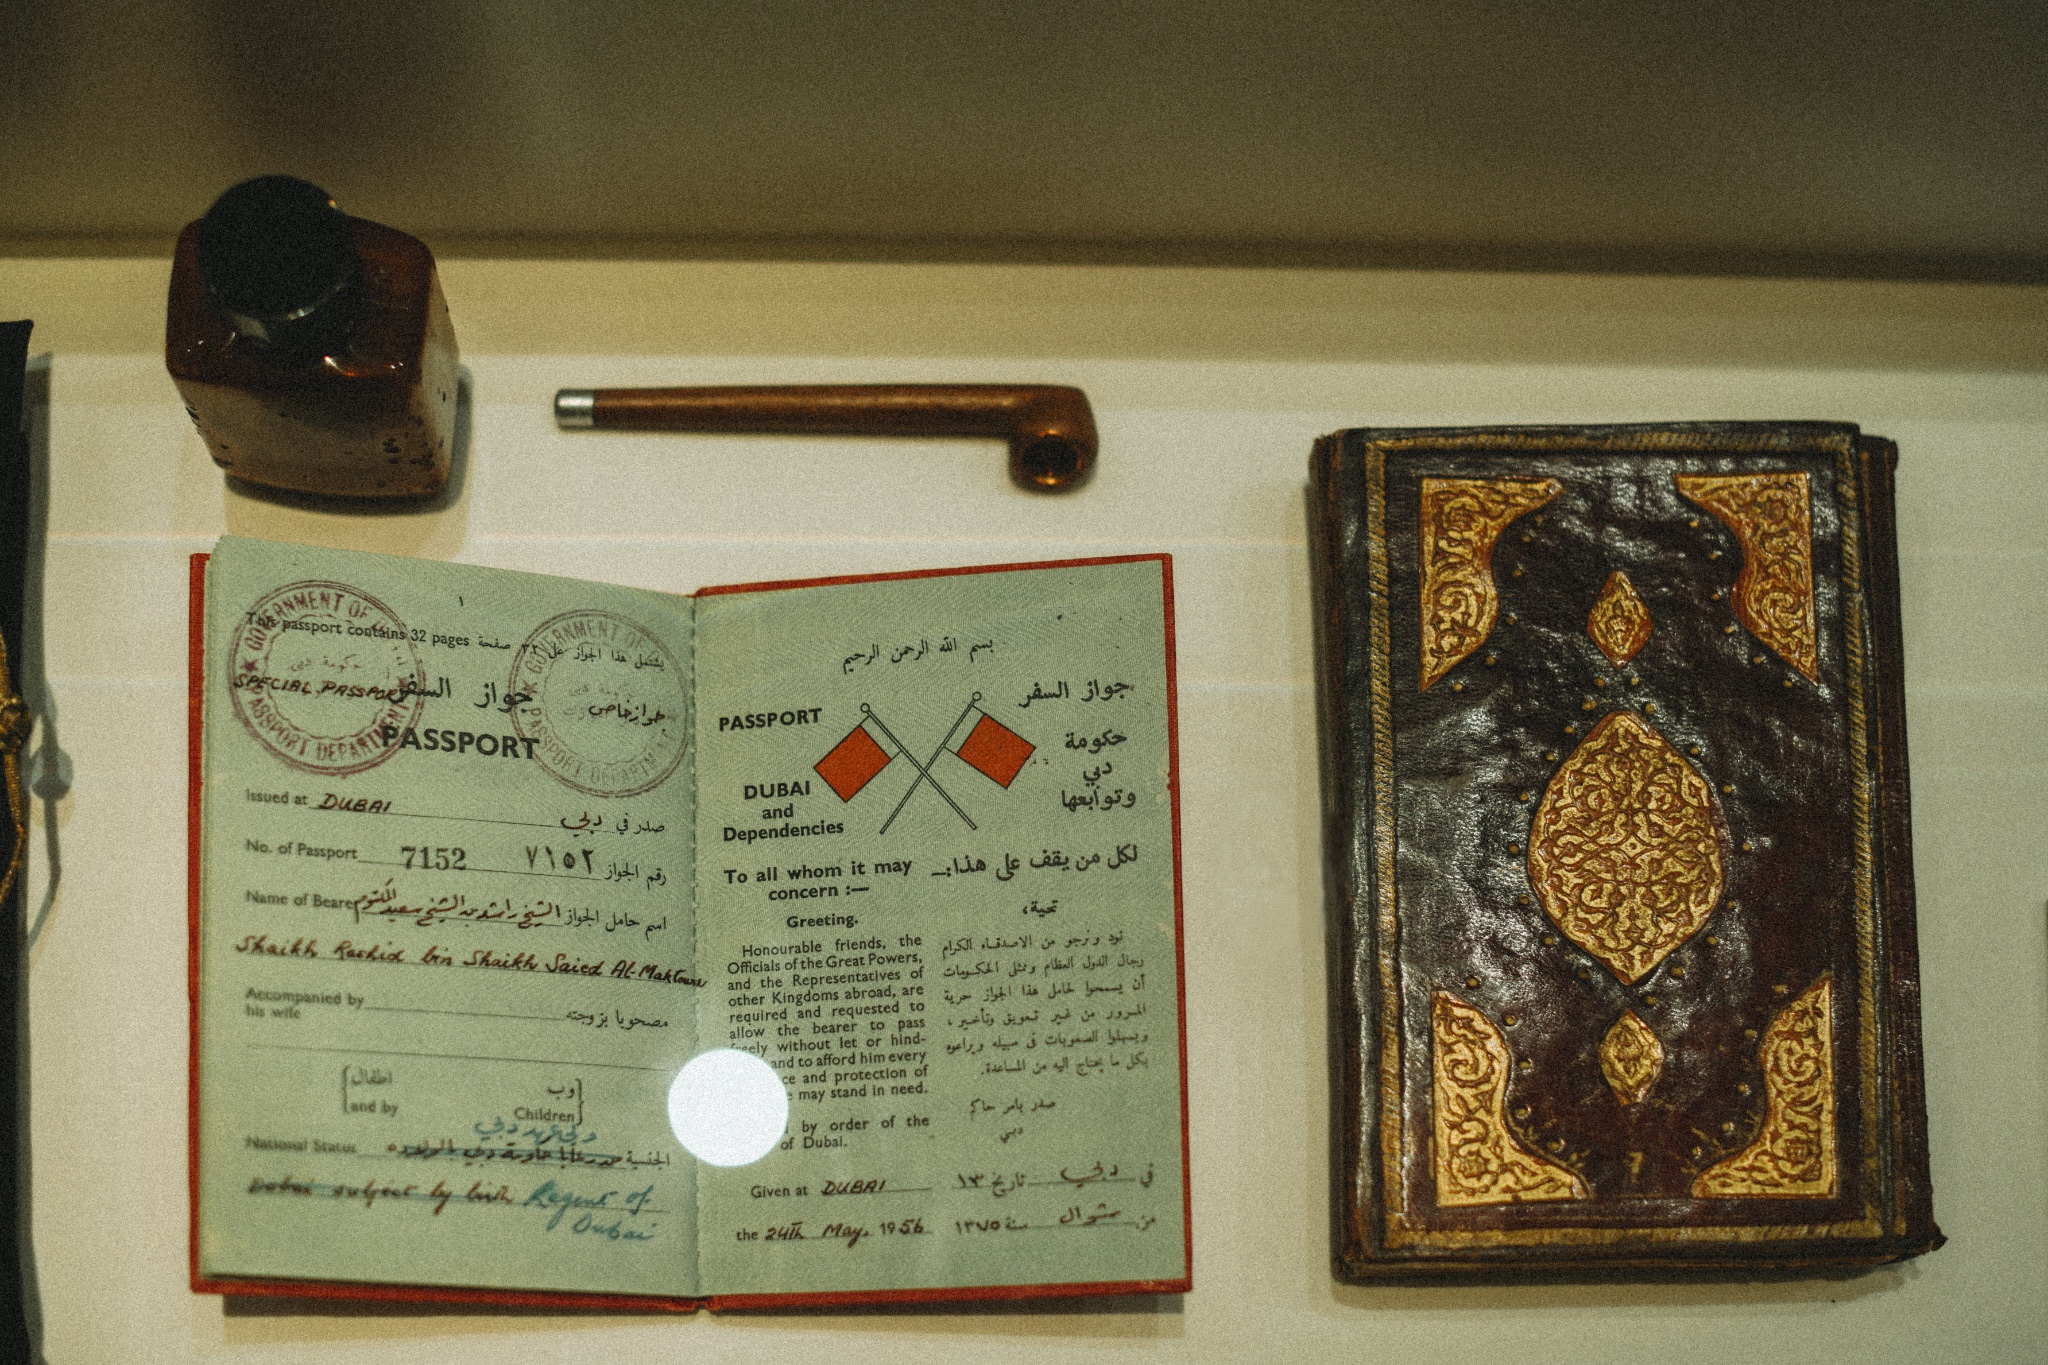 GOVERNMENT OF
حكومة دبي
PASSPORT DEPARTMENT
GOVERNMENT OF
PASSPORT DEPARTM
١
This passport contains 32 pages يشتمل هذا الجواز على ٣٢ صفحة
SPECIAL PASSPORT جواز السفر جواز خاص
PASSPORT
Issued at DUBAI صدر في دبي
No. of Passport 7152 ٧١٥٢ رقم الجواز
Name of Bearer الشيخ راشد بن الشيخ سعيد المكتوم اسم حامل الجواز
Shaikh Rashid bin Shaikh Saied Al-Maktoum
Accompanied by مصحوبا بزوجته
his wife
اطفال وب
and by Children
National Status الجنسية
Dubai subject by birth Regent of
Dubai
بسم الله الرحمن الرحيم
PASSPORT جواز السفر
حكومة
دبي
وتوابعها
DUBAI
and
Dependencies
To all whom it may
concern :—
لكل من يقف على هذا:—
Greeting.
Honourable friends, the
Officials of the Great Powers,
and the Representatives of
other Kingdoms abroad, are
required and requested to
allow the bearer to pass
freely without let or hind-
and to afford him every
ce and protection of
may stand in need.
by order of the
of Dubai.
تحية،
نود ونرجو من الاصدقاء الكرام
رجال الدول العظام وممثلي الحكومات
أن يسمحوا لحامل هذا الجواز حرية
المرور من غير تعويق وتأخير ،
ويسهلوا الصعوبات في سبيله ويراعوه
بكل ما يحتاج اليه من المساعدة.
صدر بامر حاكم
دبي
Given at DUBAI في دبي تاريخ ١٣
the 24th May, 1956 من شوال سنة ١٣٧٥